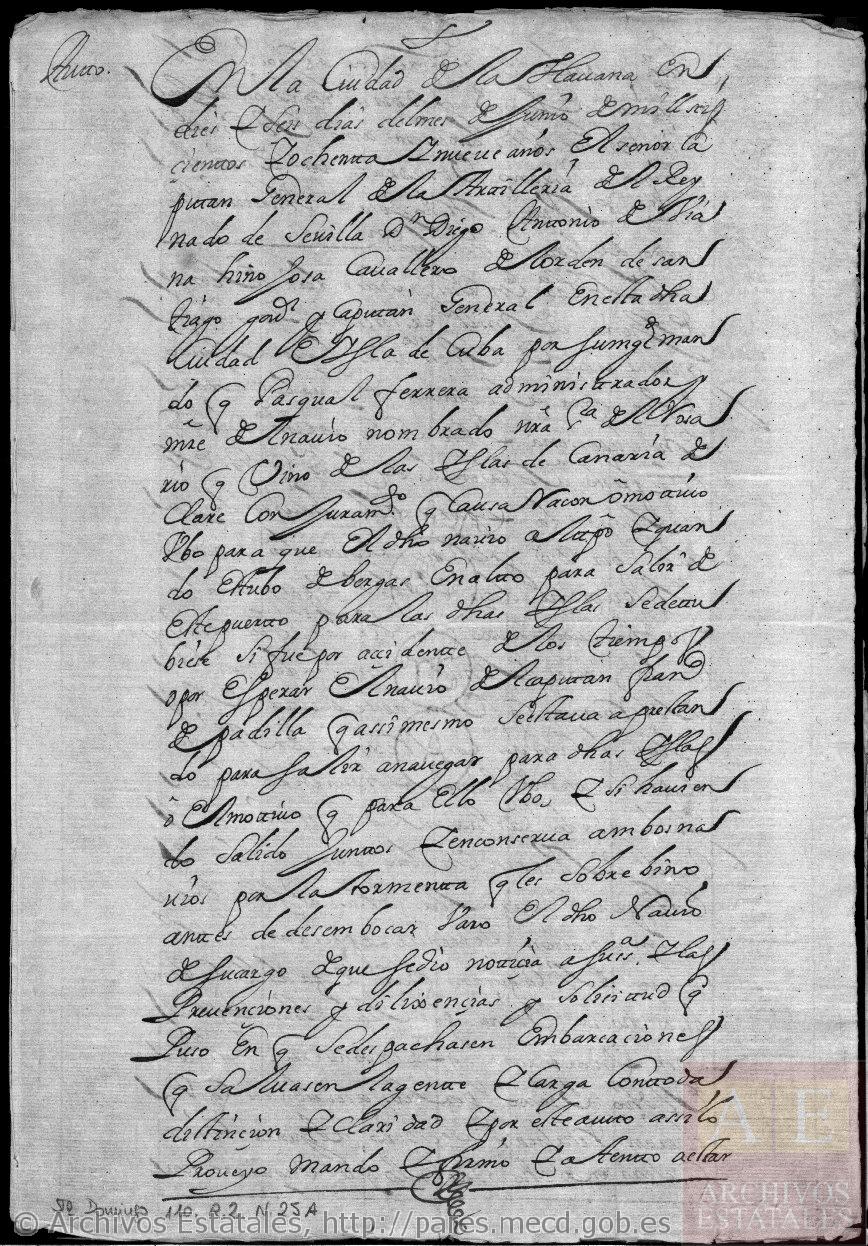 Auto.
En la Ciudad de la Havana en
dies y seis dias del mes de Junio de mill seis
çientos y ochenta y nueve años El señor Ca
pitan General de la Artilleria del Rey
nado de Sevilla Dn Diego Antonio de Via
na hino Josa Cavallero del orden de san
tiago govr y Capitan General En esta dha
Ciudad E Ysla de Cuba por su mgd man
do q Pasqual ferrera administrador
mre del navio nombrado nra sra del Rosa
rio q Vino de las Yslas de Canaria de
Clare Con Juramto q Causa Racon o motivo
Ubo para que El dho navio a su tpo y quan
do Estubo de bergas En alto para salir de
este puerto para las dhas Yslas se detu
biese si fue por accidente de los tiempos
o por Esperar El navio del capitan Franco
de padilla q assi mesmo se estava aprestan
do para salir a navegar para dhas Yslas
o El motivo q para Ello Ubo, y si havien
do salido Juntos y en conserva ambos na
vios por la tormenta q les sobre bino
antes de desembocar Varo El dho Navio
de su cargo de que se dio notiçia a su sa. y las
Prevenciones y dilixencias y solicitud q
Puso En q se despachasen Embarcaciones
q salvasen la gente y Carga Con toda
distincion y claridad y por este auto assi lo
Proveyo mando y firmo y atento a estar
Sto Domingo 110. R.2 N.25A
AE
ARCHIVOS
ESTATALES
© Archivos Estatales, http://pares.mecd.gob.es